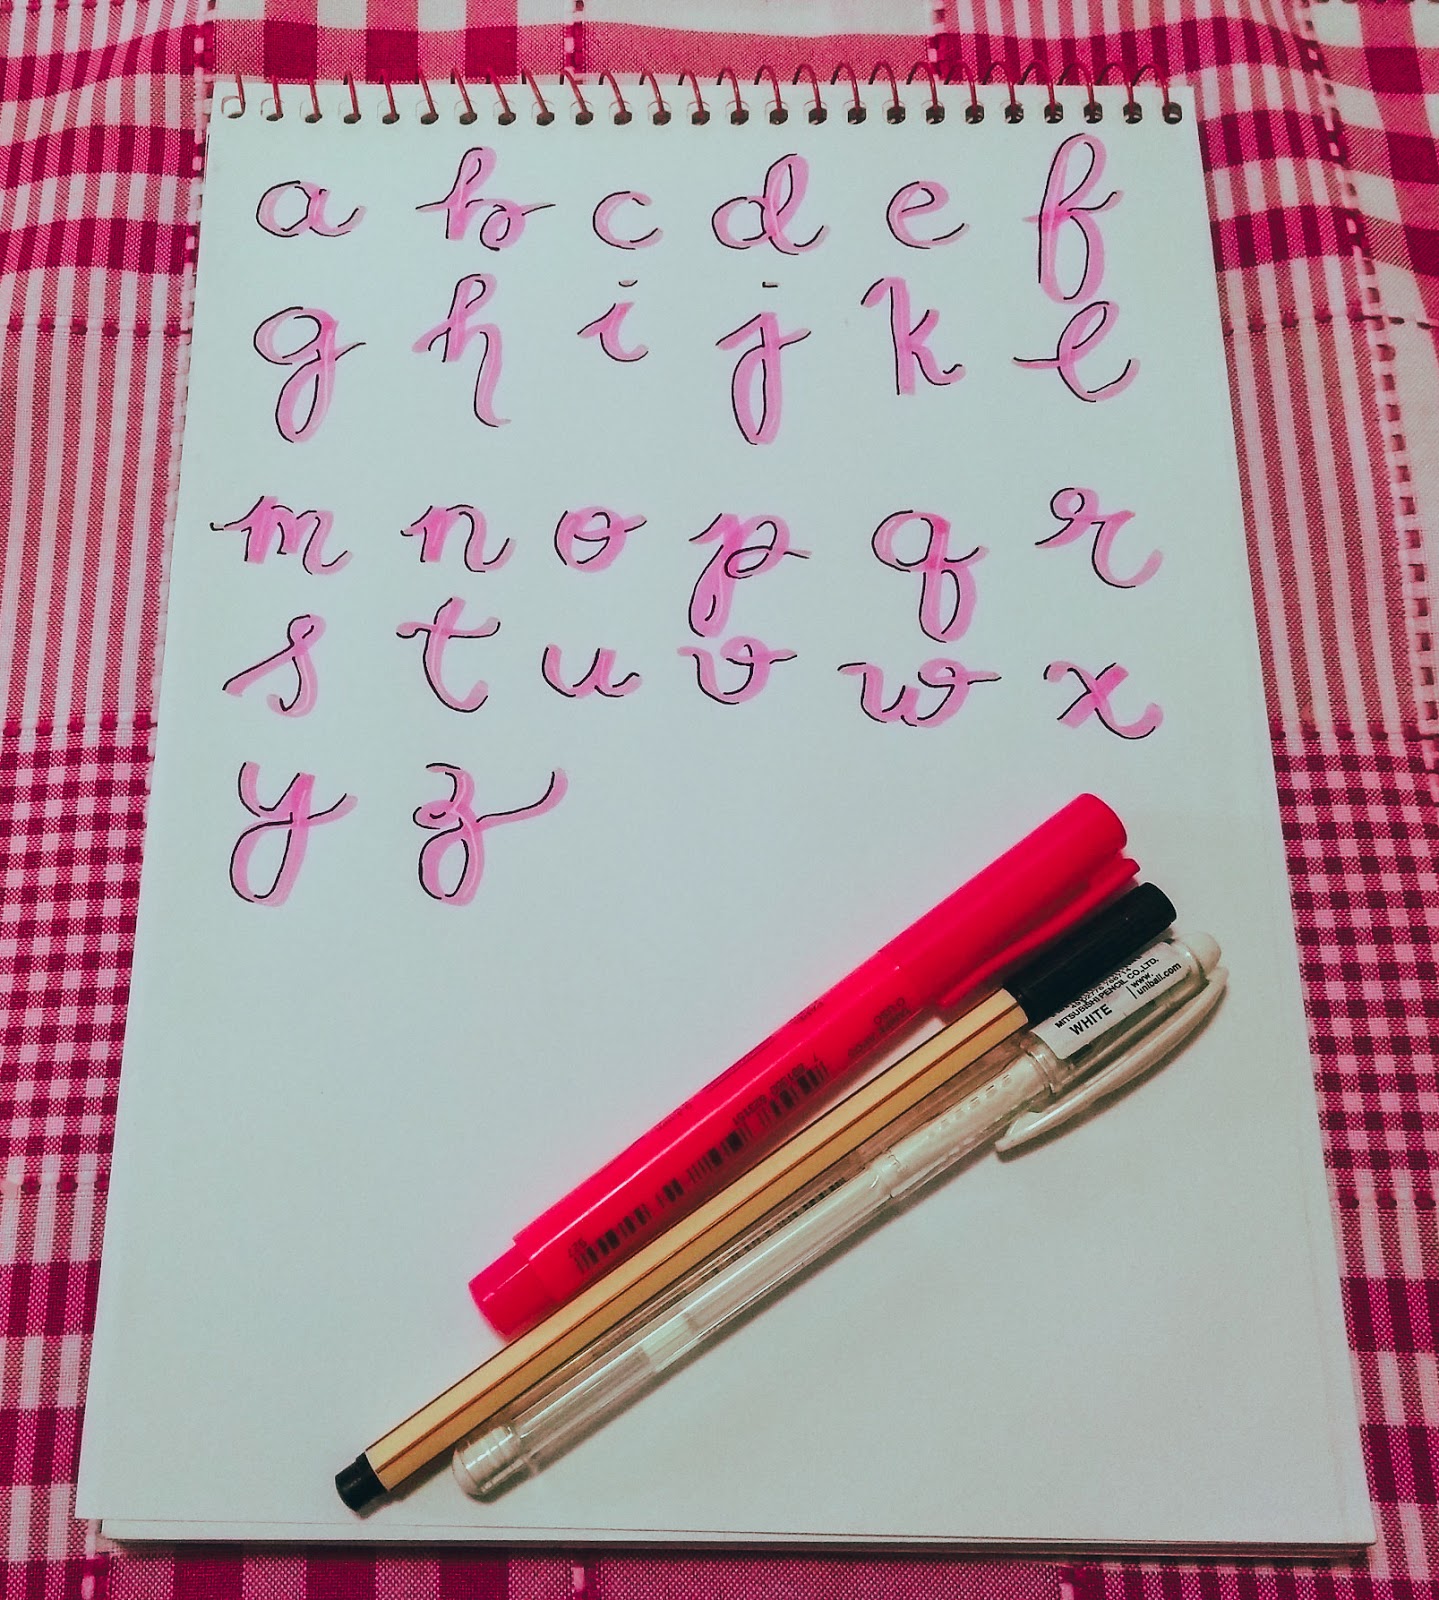 a b c d e f
g h i j k l
m n o p q r
s t u v w x
y z
MITSUBISHI PENCIL CO.,LTD.
WHITE
www.
uniball.com